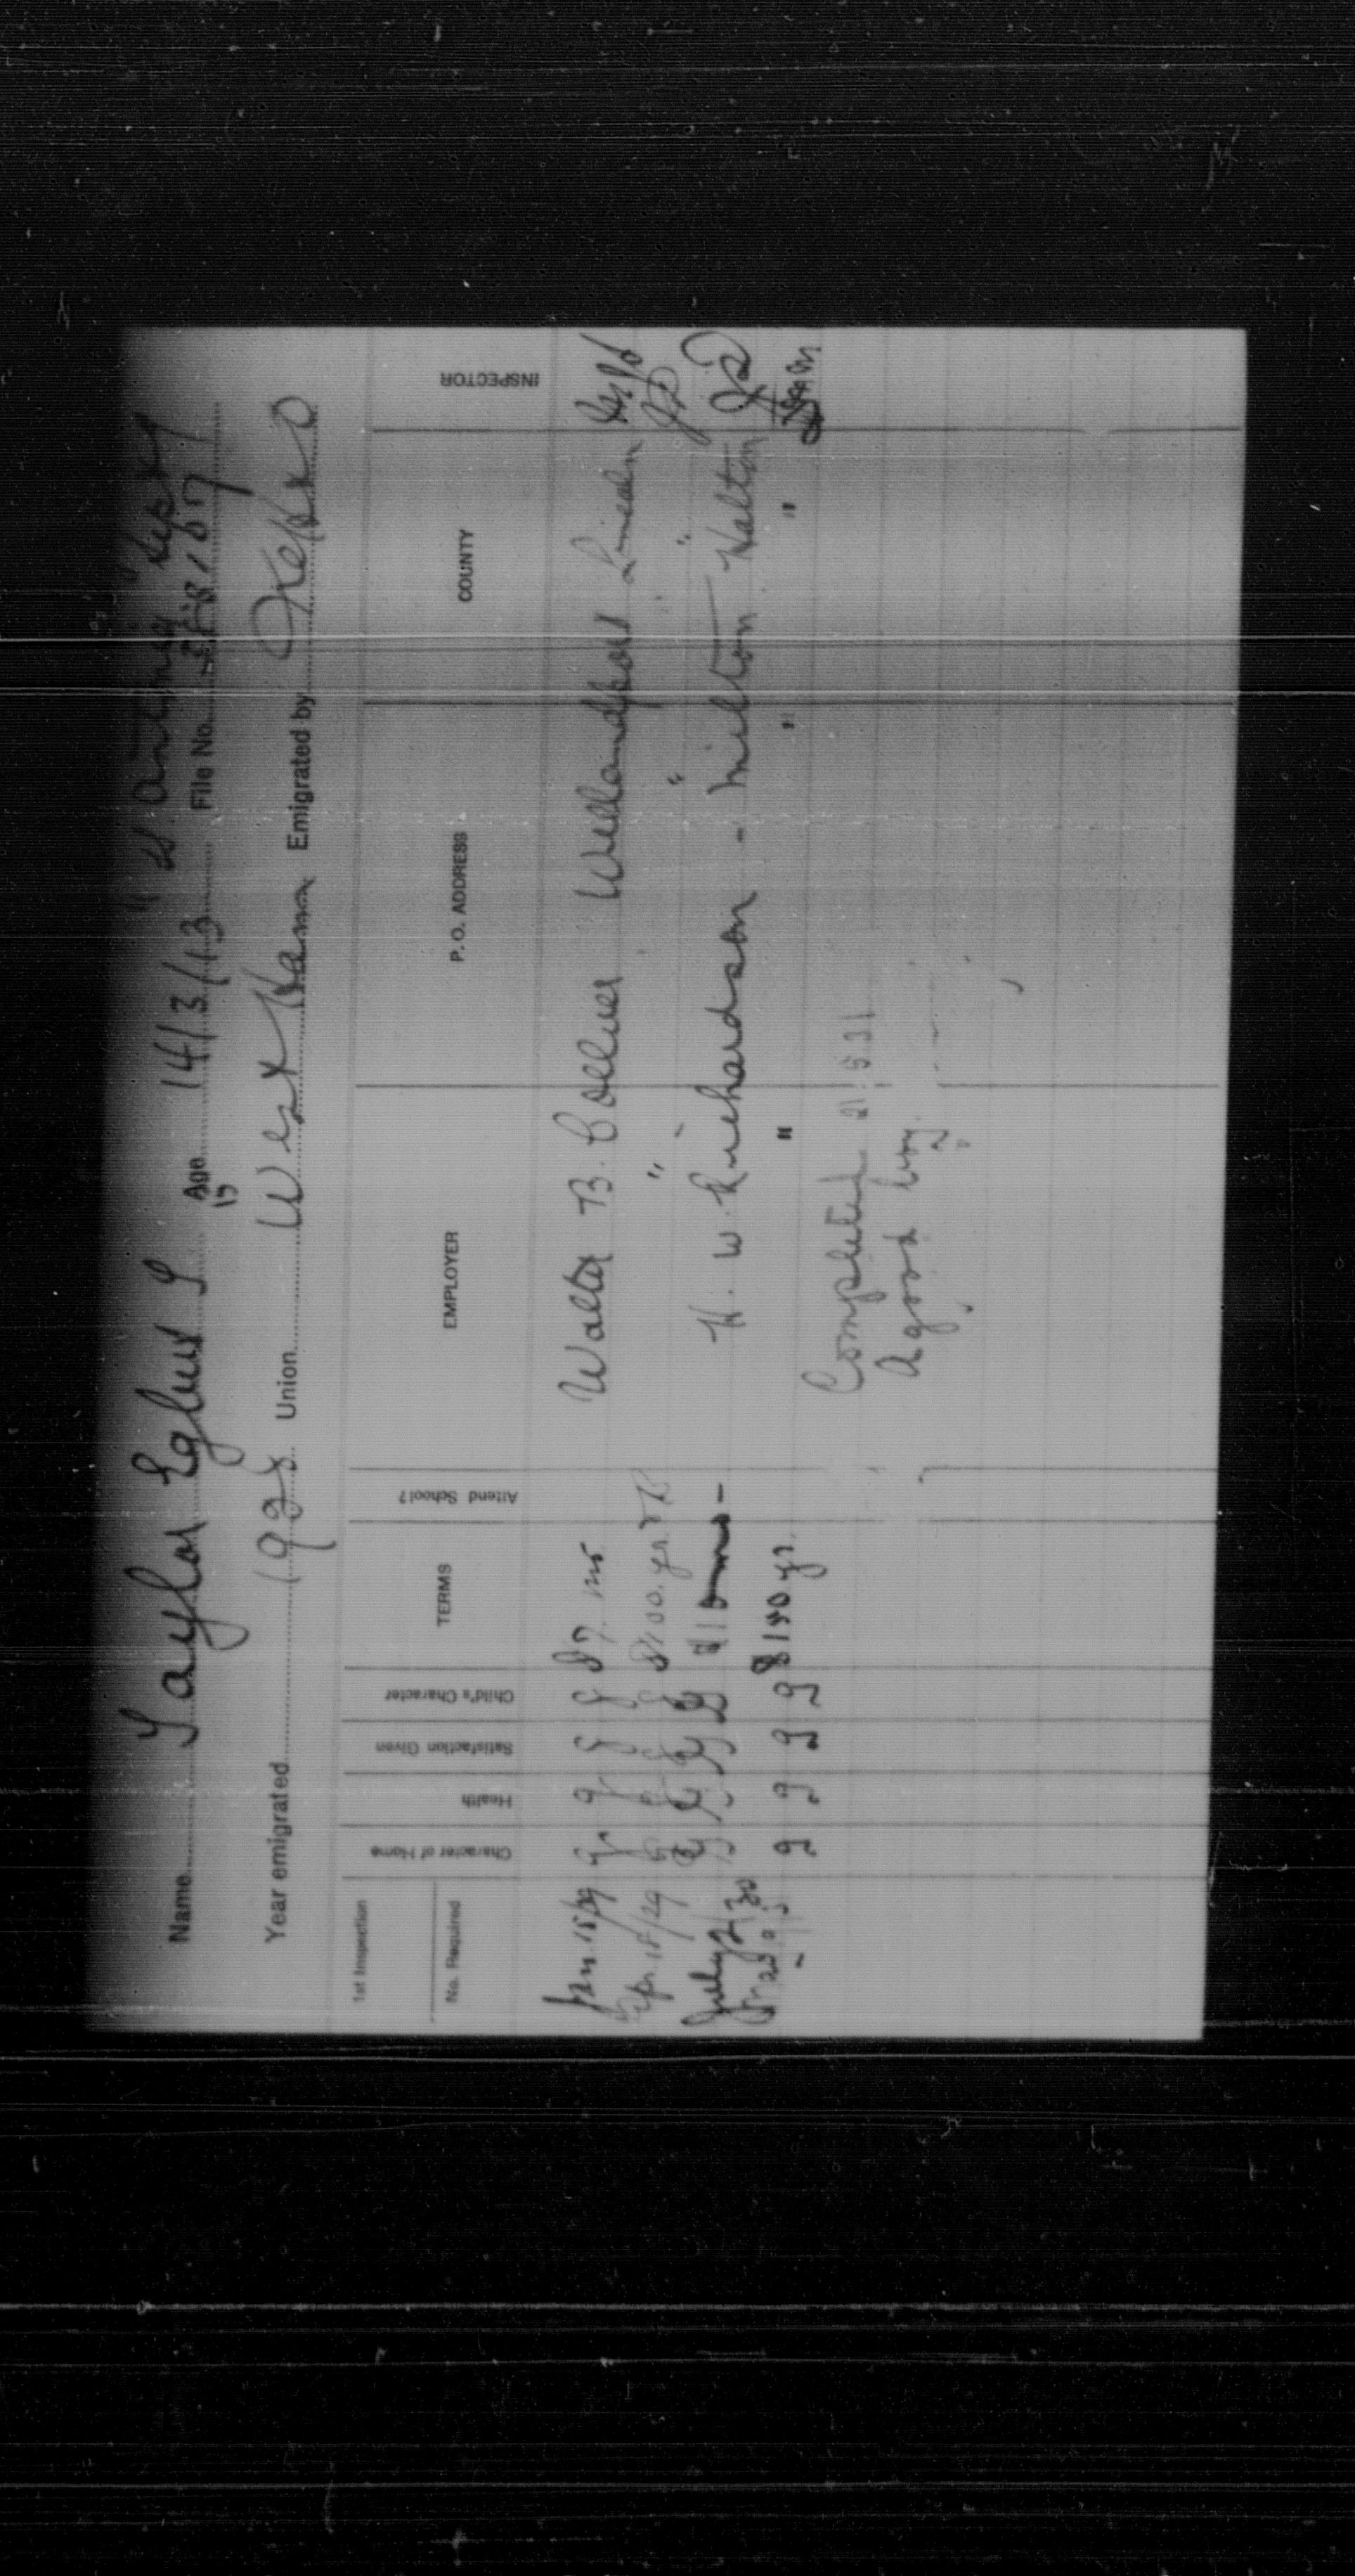 Name Taylor Age 14/3/13 File No.
15
Year emigrated 1928 Union West Ham Emigrated by
1st Inspection
No. Required Character of Home Health Satisfaction Given Child's Character TERMS Attend School? EMPLOYER P. O. ADDRESS COUNTY INSPECTOR
Jan 15/29 g g g g $7 mo Walter B. Wellandport Lincoln
Apr 18/29 g g g g $100. yr " " "
July 2/30 g g g g H. W. Richardson - Milton Halton
g g g g yr. " " "
Completed 21.5.31
A good boy.